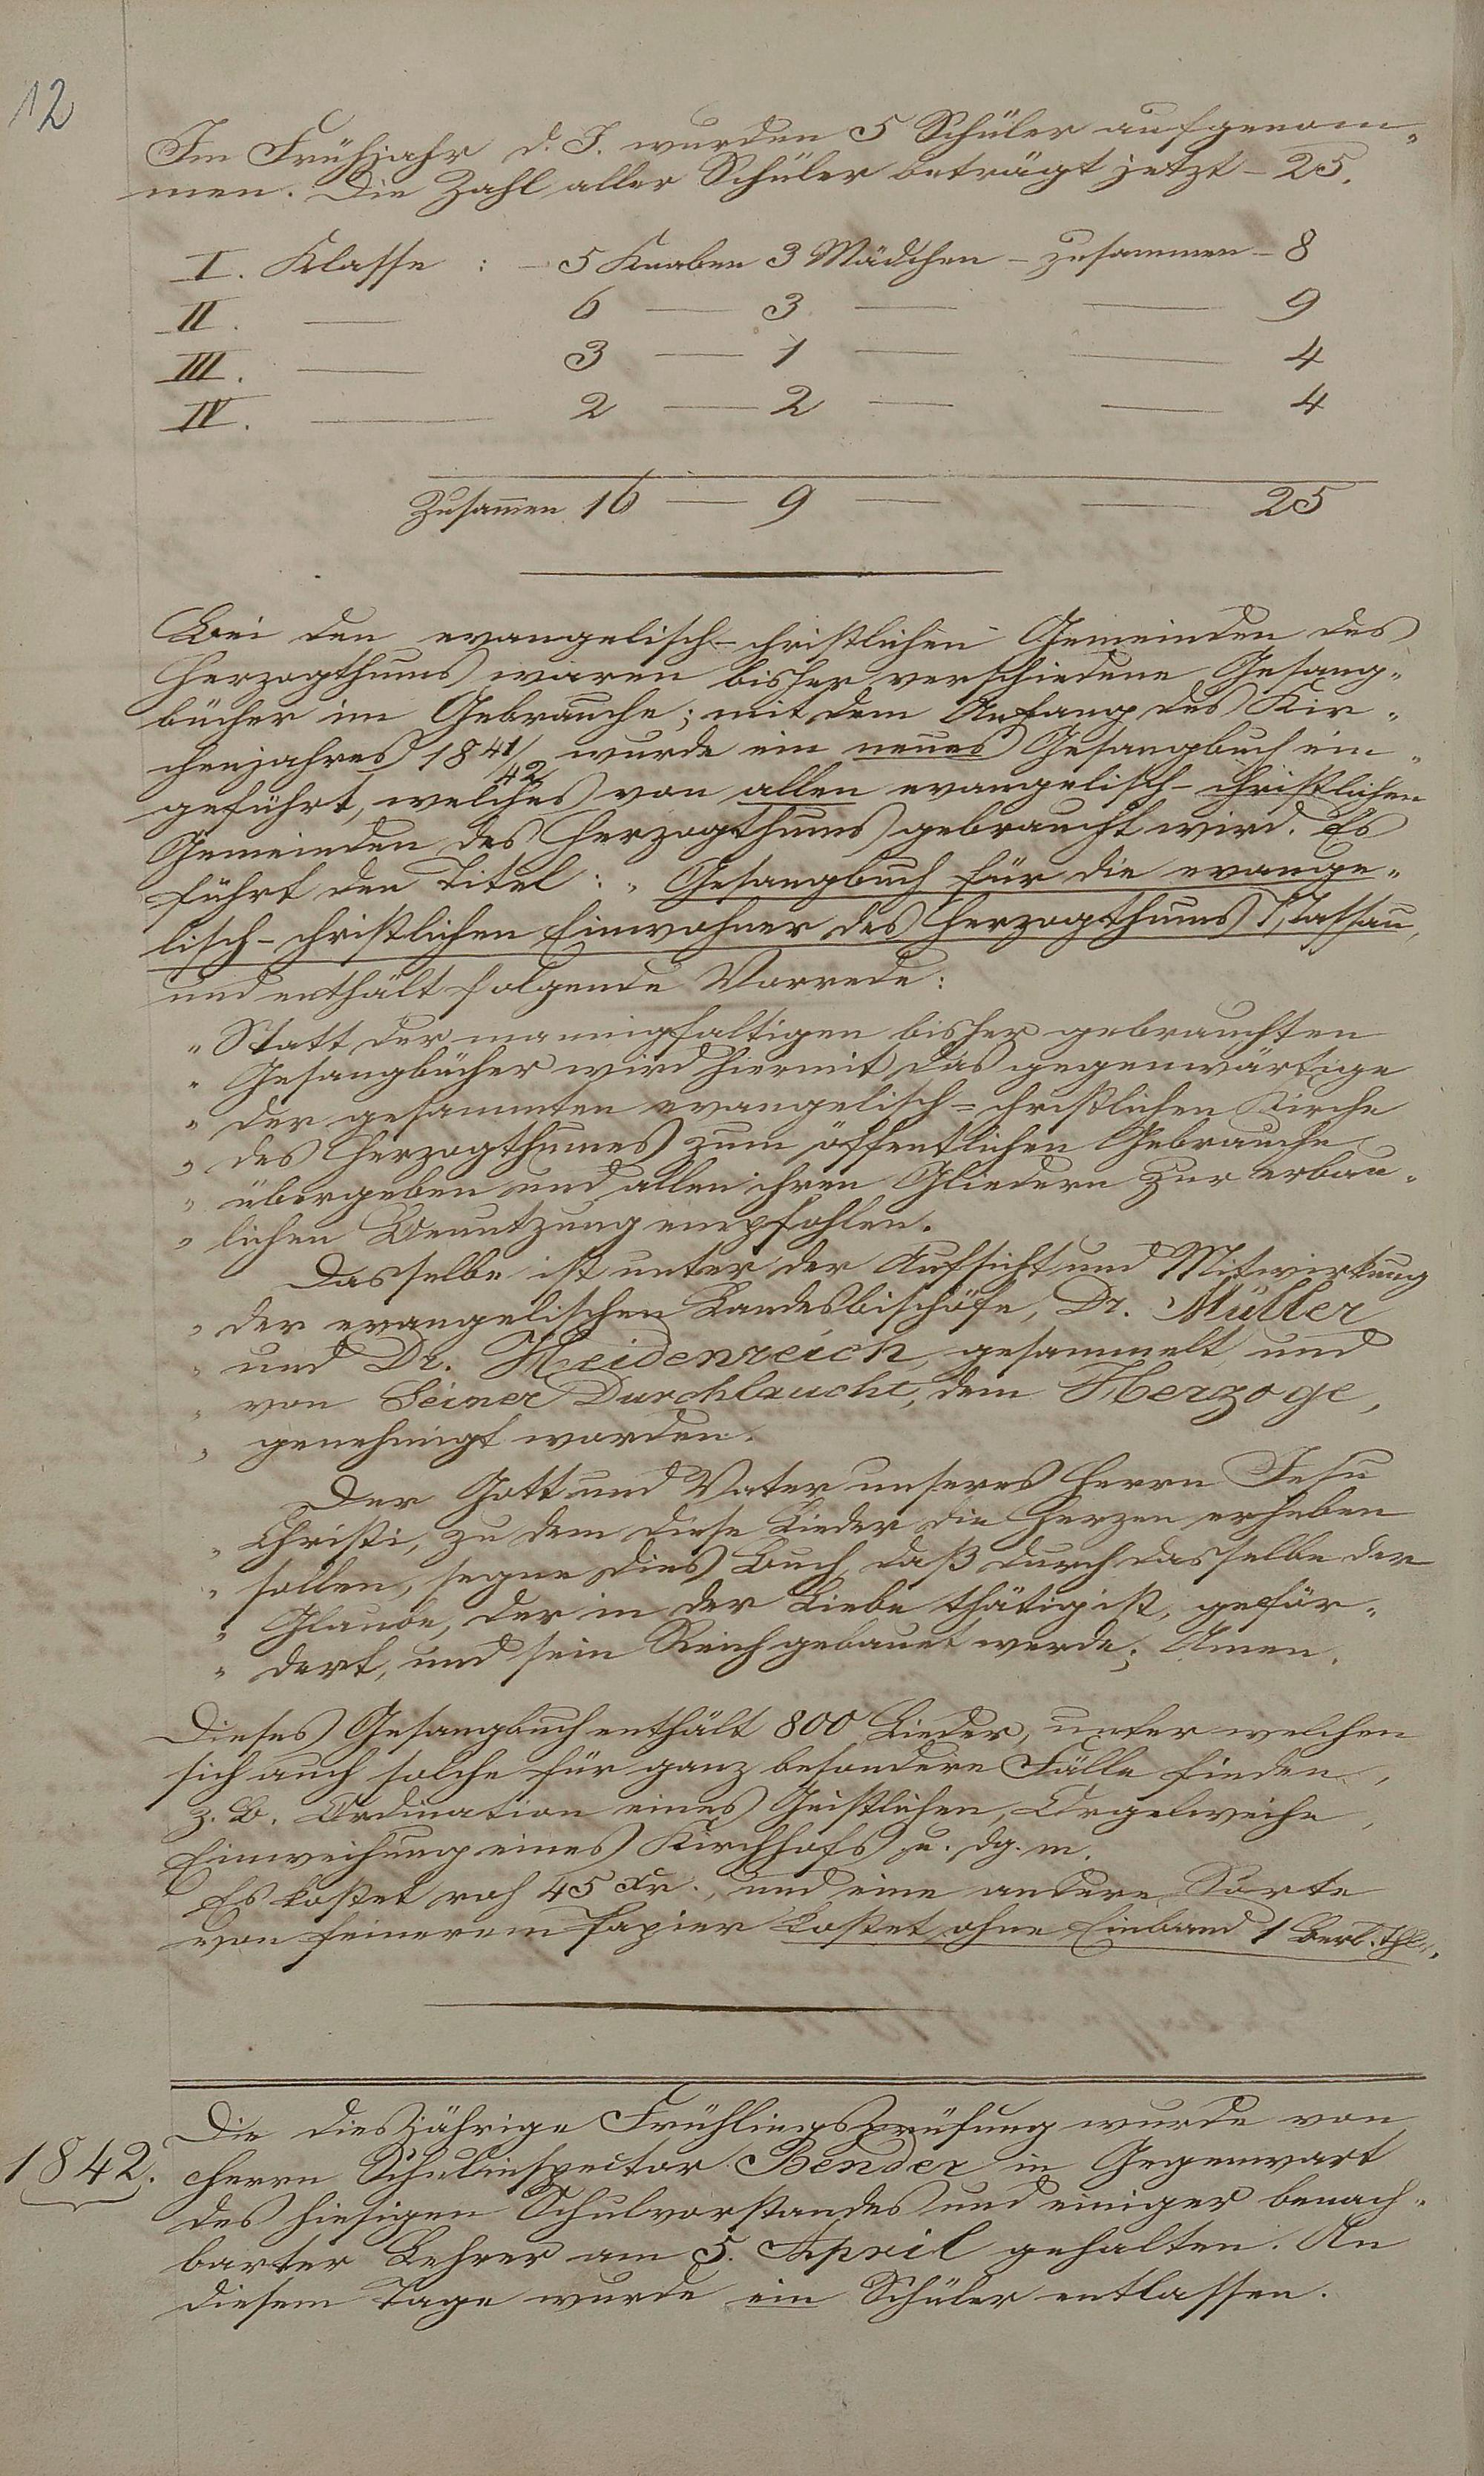 12
Im Frühjahr d. J. wurden 5 Schüler aufgenom-
men. Die Zahl aller Schüler beträgt jetzt – 25.
I. Klasse : – 5 Knaben 3 Mädchen – zusammen – 8
II. — 6 — 3 — — 9
III. — 3 — 1 — — 4
IV. — 2 — 2 — — 4
Zusammen 16 — 9 — — 25
Bei den evangelisch-christlichen Gemeinden des
Herzogthums waren bisher verschiedene Gesang-
bücher im Gebrauche; mit dem Anfang des Kir-
chenjahres 1841/42 wurde ein neues Gesangbuch ein-
geführt, welches von allen evangelisch-christlichen
Gemeinden des Herzogthums gebraucht wird. Es
führt den Titel: „Gesangbuch für die evange-
lisch-christlichen Einwohner des Herzogthums Nassau,
und enthält folgende Vorrede:
„ Statt der mannigfaltigen bisher gebrauchten
„ Gesangbücher wird hiermit das gegenwärtige
„ der gesammten evangelisch-christlichen Kirche
„ des Herzogthumes zum öffentlichen Gebrauche
„ übergeben und allen ihren Gliedern zur erbau-
„ lichen Benutzung empfohlen.
Dasselbe ist unter der Aufsicht und Mitwirkung
„ der evangelischen Landesbischöfe, Dr. Müller
„ und Dr. Heidenreich, gesammelt und
„ von Seiner Durchlaucht, dem Herzoge,
„ genehmigt worden.
Der Gott und Vater unseres Herrn Jesu
„ Christi, zu dem diese Lieder die Herzen erheben
„ sollen, segne dies Buch, daß durch dasselbe der
„ Glaube, der in der Liebe thätig ist, geför-
„ dert, und sein Reich gebauet werde; Amen.
Dieses Gesangbuch enthält 800 Lieder, unter welchen
sich auch solche für ganz besondere Fälle finden,
z. B. Ordination eines Geistlichen, Orgelweihe,
Einweihung eines Kirchhofs u. dg. m.
Es kostet roh 45 Xr., und eine andere Sorte
von feinerem Papier kostet ohne Einband 1 Berl. Thlr.
1842.
Die diesjährige Frühlingsprüfung wurde von
Herrn Schulinspector Bender in Gegenwart
des hiesigen Schulvorstandes und einiger benach-
barter Lehrer am 5. April gehalten. An
diesem Tage wurde ein Schüler entlassen.